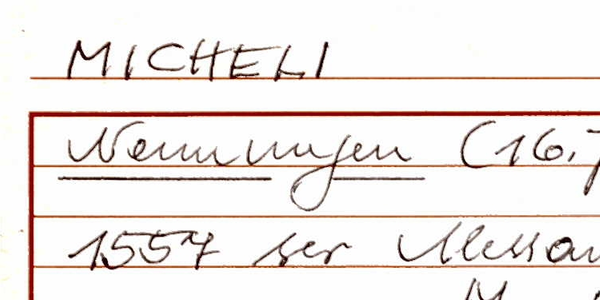 MICHELI
Nennungen (16.7
1557 ser Alessan
M